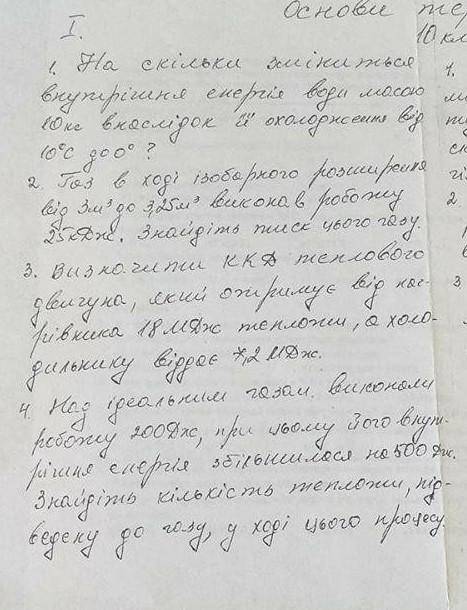 Основи те
I.
10 кл
1. На скільки зміниться
внутрішня енергія води масою
10 кг внаслідок її охолодження від
10°С до 0°?
2. Газ в ході ізобарного розширення
від 3м³ до 3,25м³ виконав роботу
25кДж. Знайдіть тиск цього газу.
3. Визначити ККД теплового
двигуна, який отримує від наг-
рівника 18 МДж теплоти, а холо-
дильнику віддає 7,2 МДж.
4. Над ідеальним газом виконали
роботу 200Дж, при цьому його внут-
рішня енергія збільшилася на 500 Дж.
Знайдіть кількість теплоти, під-
ведену до газу, у ході цього процесу.
1.
2
3